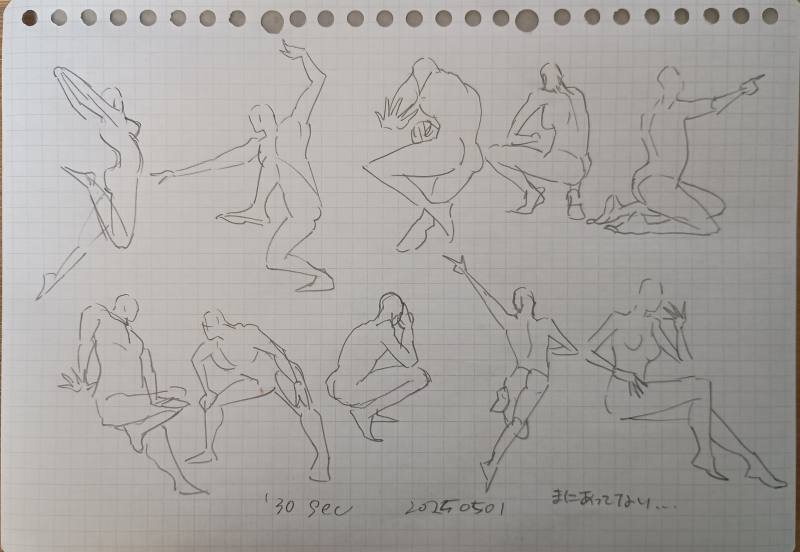 '30 sec 20250501 まにあってない...